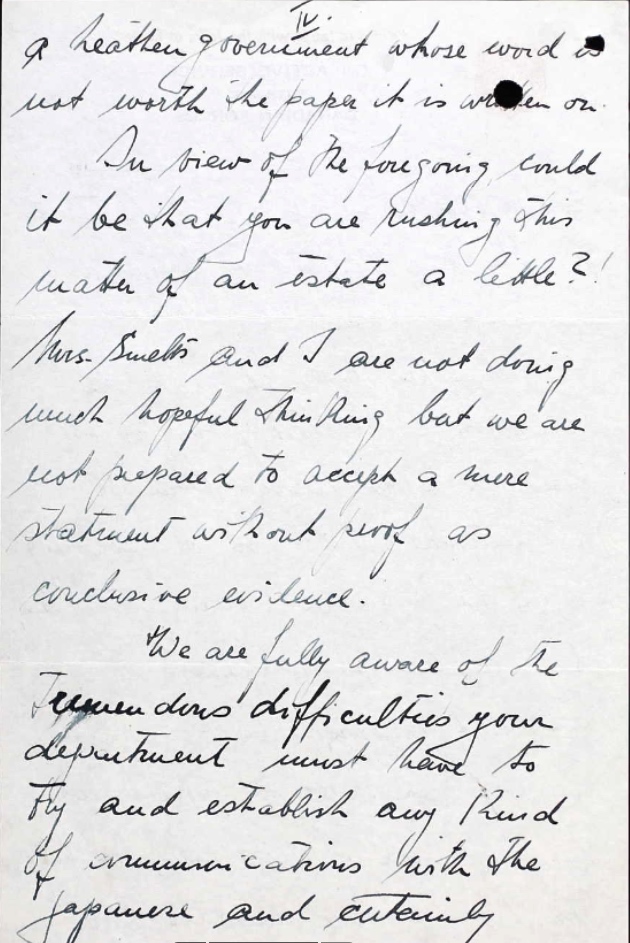 IV.
a heathen government whose word is
not worth the paper it is written on.
In view of the foregoing, could
it be that you are rushing this
matter of an estate a little?!
Mrs. Smelts and I are not doing
much hopeful thinking but we are
not prepared to accept a mere
statment without proof as
conclusive evidence.
We are fully aware of the
Tremendous difficulties your
department must have to
try and establish any Kind
of communications with the
Japanese and certainly